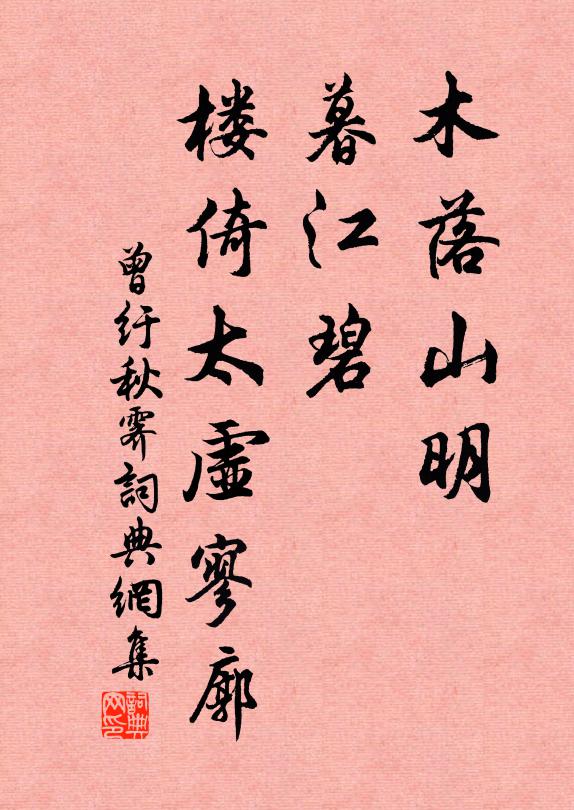 木落山明
暮江碧
楼倚太虚寥廓
曾纡秋霁詞典網集
詞典网印